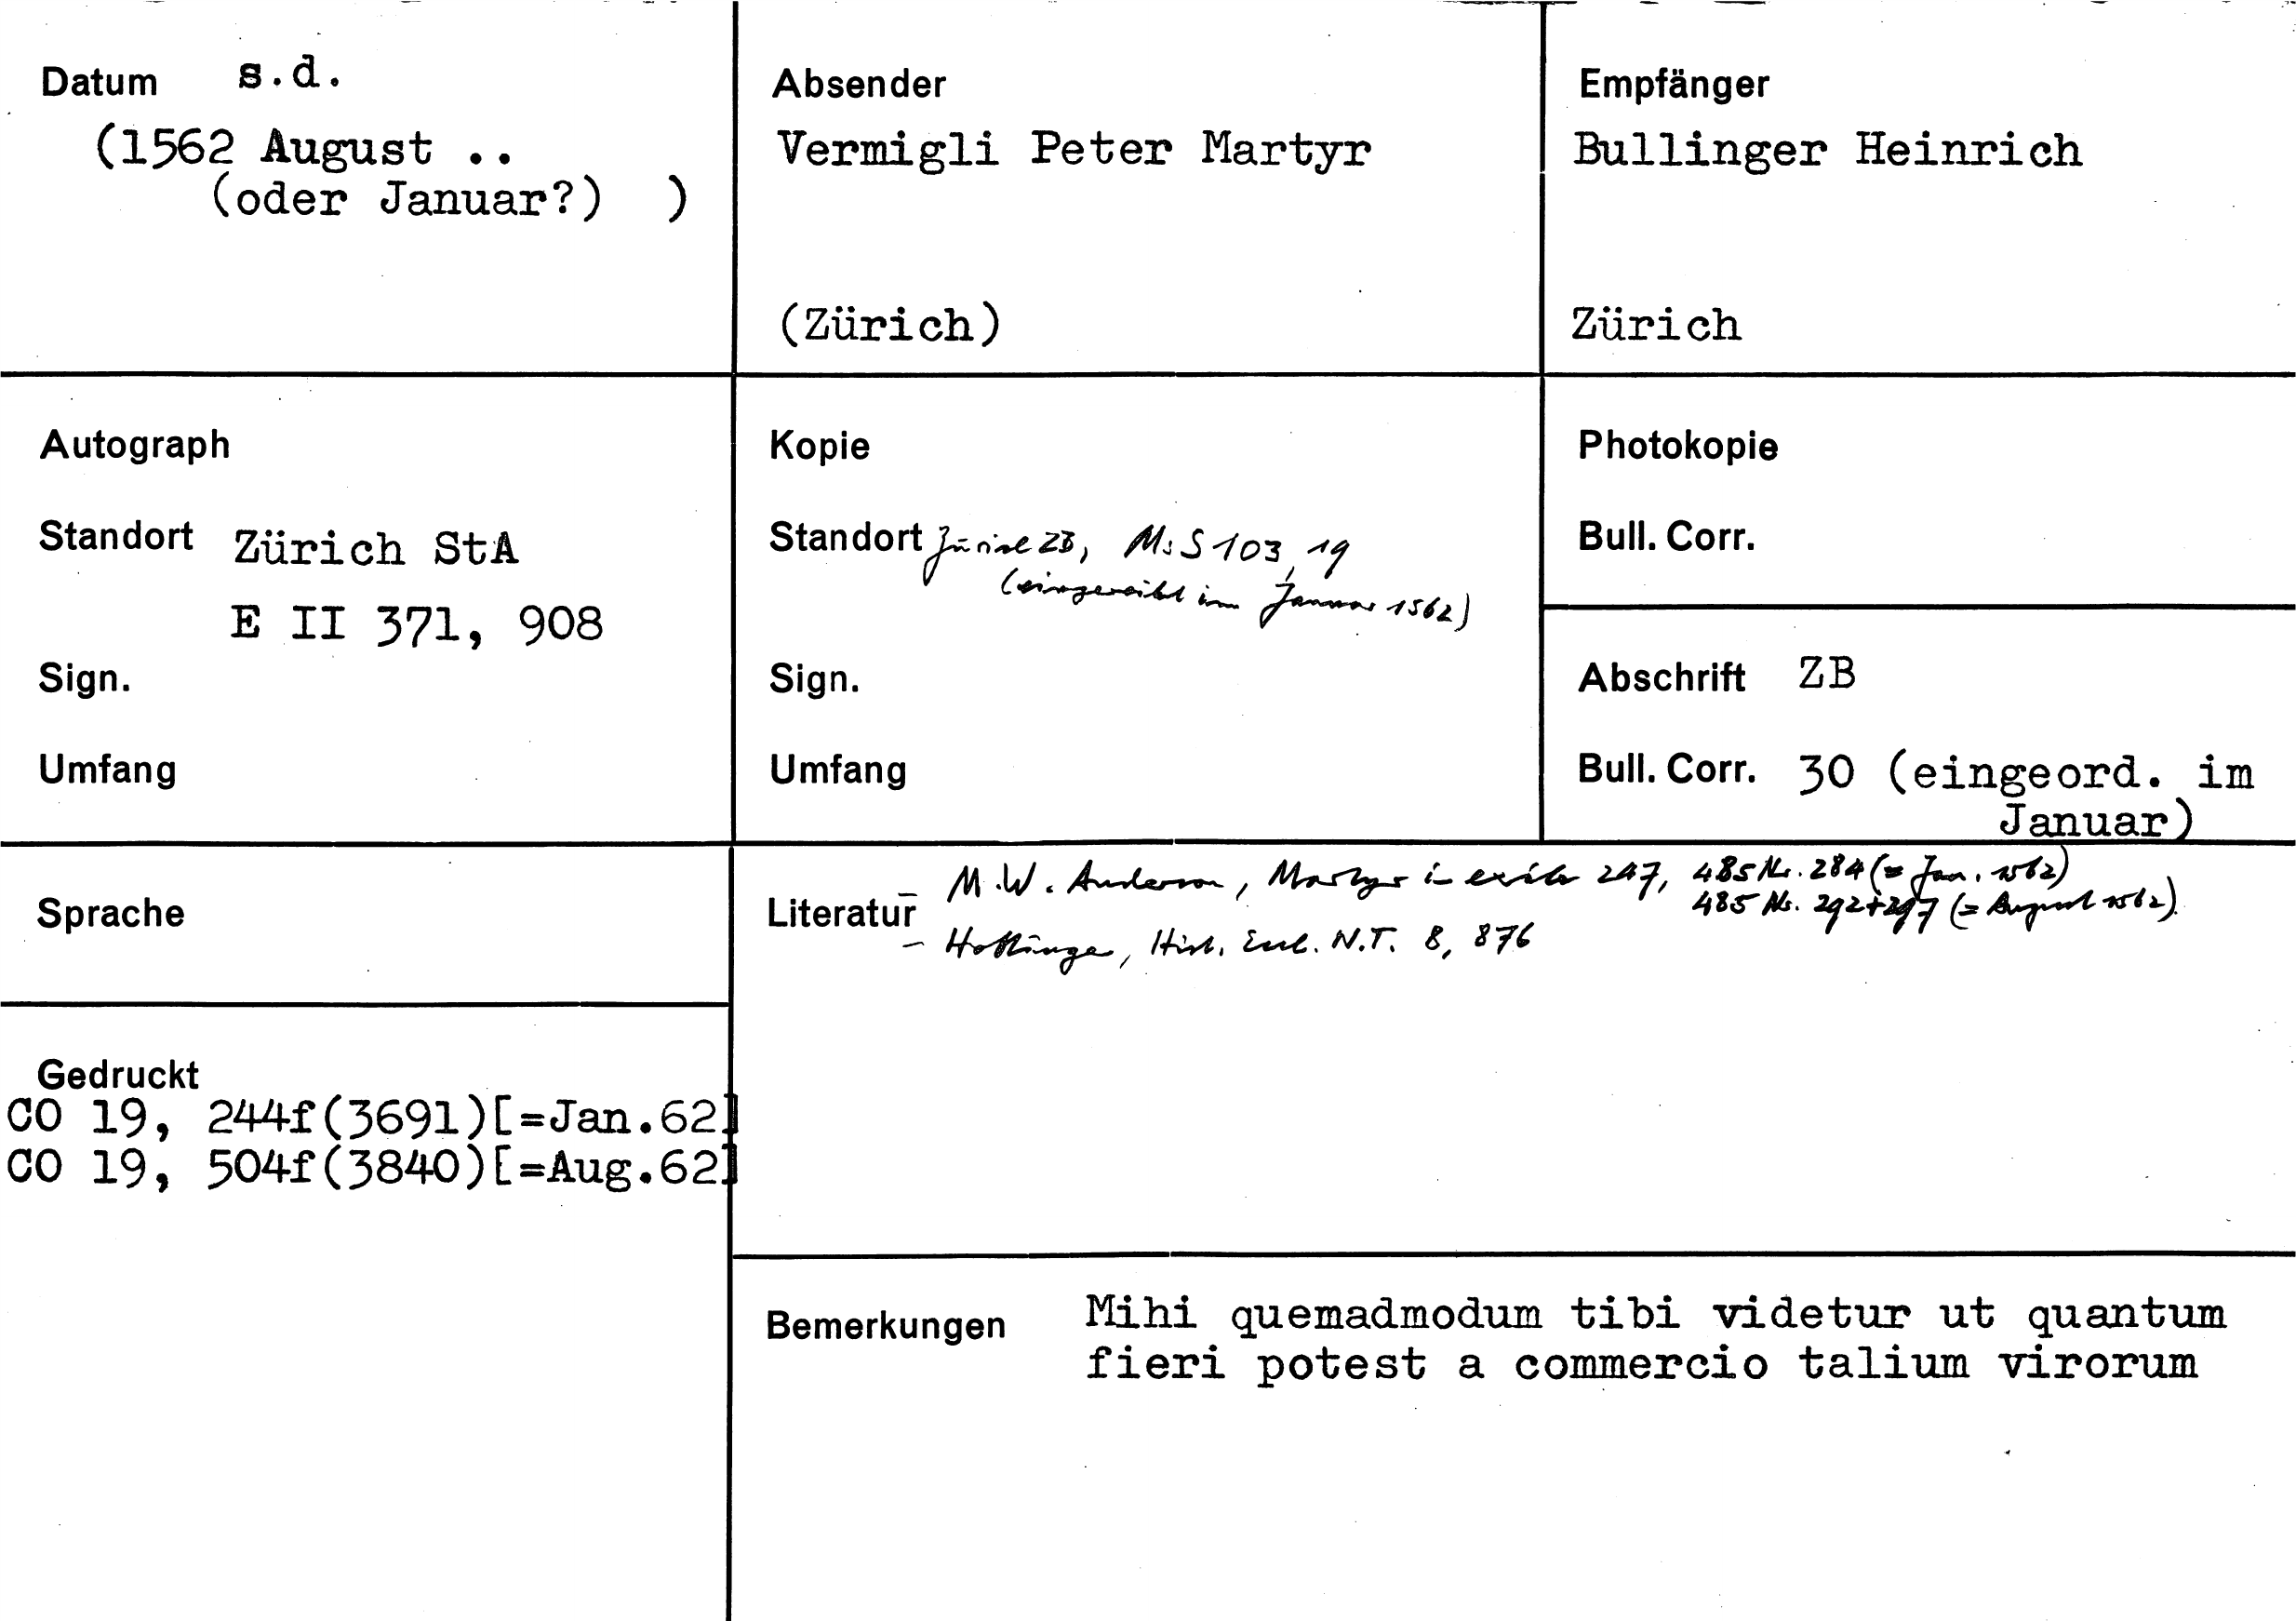 Datum s.d.
(1562 August ..
(oder Januar?) )
Absender
Vermigli Peter Martyr
(Zürich)
Empfänger
Bullinger Heinrich
Zürich
Autograph
Standort Zürich StA
E II 371, 908
Sign.
Umfang
Kopie
Standort Zürich ZB, Ms S 103, 19
(eingereiht im Januar 1562)
Sign.
Umfang
Photokopie
Bull. Corr.
Abschrift ZB
Bull. Corr. 30 (eingeord. im
Januar)
Sprache
Gedruckt
CO 19, 244f(3691)[=Jan.62]
CO 19, 504f(3840)[=Aug.62]
Literatur
- M.W. Anderson, Martyr in exile 247, 485 Nr. 284 (= Jan. 1562)
485 Nr. 292+297 (= August 1562).
- Hottinger, Hist. Eccl. N.T. 8, 876
Bemerkungen Mihi quemadmodum tibi videtur ut quantum
fieri potest a commercio talium virorum